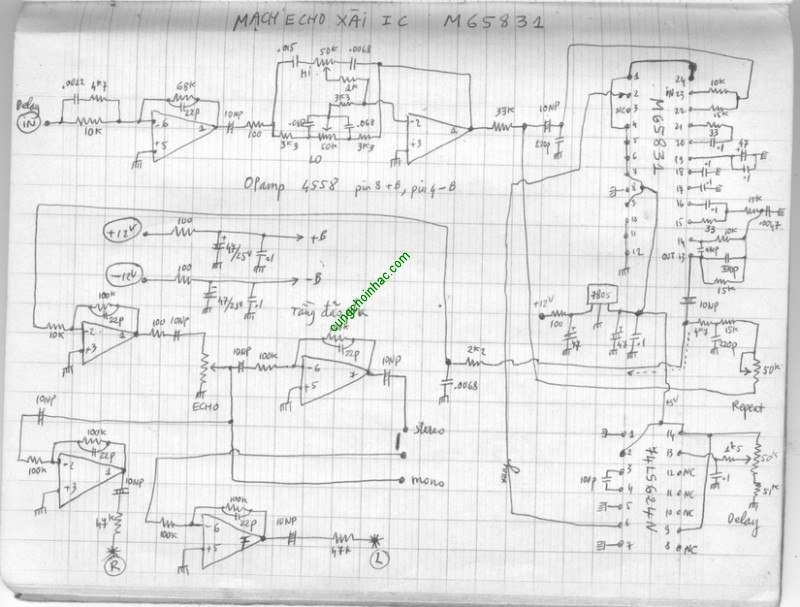 MẠCH ECHO XÀI IC M65831
.015
50K
.0068
Hi
1K
.0022
4K7
68K
22p
3K3
Delay
IN
10K
-6
+5
10NP
100
.068
3K3
50K
3K3
LO
-2
+3
1
33K
10NP
220p
OPamp 4558 pin 8 +B, pin 4 -B
1
2
NC 3
4
5
6
7
8
9
10
11
12
M65831
24
IN 23
22
21
20
19
18
17
16
15
14
OUT 13
10K
15K
33
.1
47
E
.1
.1
E
.1
E
.1
15K
E
.0047
33
10K
15K
10NP
+12V
100
+
47/25V
.1
+B
-12V
100
47/25V
.1
-B
Tầng
cungchoinhac.com
100K
22p
10K
-2
+3
1
100
10NP
ECHO
10NP
100K
22p
-6
+5
7
10NP
2K2
.0068
+12V
100
7805
47
47
.1
+5V
4K7
15K
220p
50K
Repeat
10NP
100K
100K
22p
-2
+3
1
10NP
47K
R
stereo
mono
100K
100K
22p
-6
+5
10NP
47K
L
1
2
3
4
5
6
7
100p
74LS624N
14
13
12 NC
11 NC
10 NC
9
8 NC
1K5
.1
50K
51K
Delay